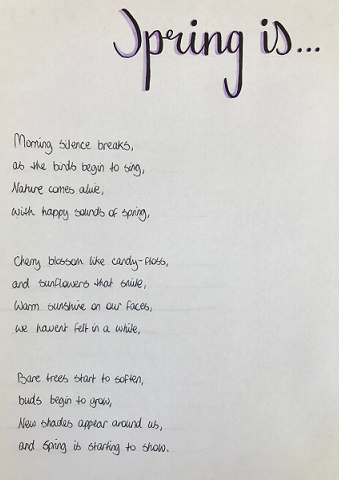 Spring is...
Morning silence breaks,
as the birds begin to sing,
Nature comes alive,
with happy sounds of spring,
Cherry blossom like candy-floss,
and sunflowers that smile,
Warm sunshine on our faces,
we havent felt in a while,
Bare trees start to soften,
buds begin to grow,
New shades appear around us,
and spring is starting to show.